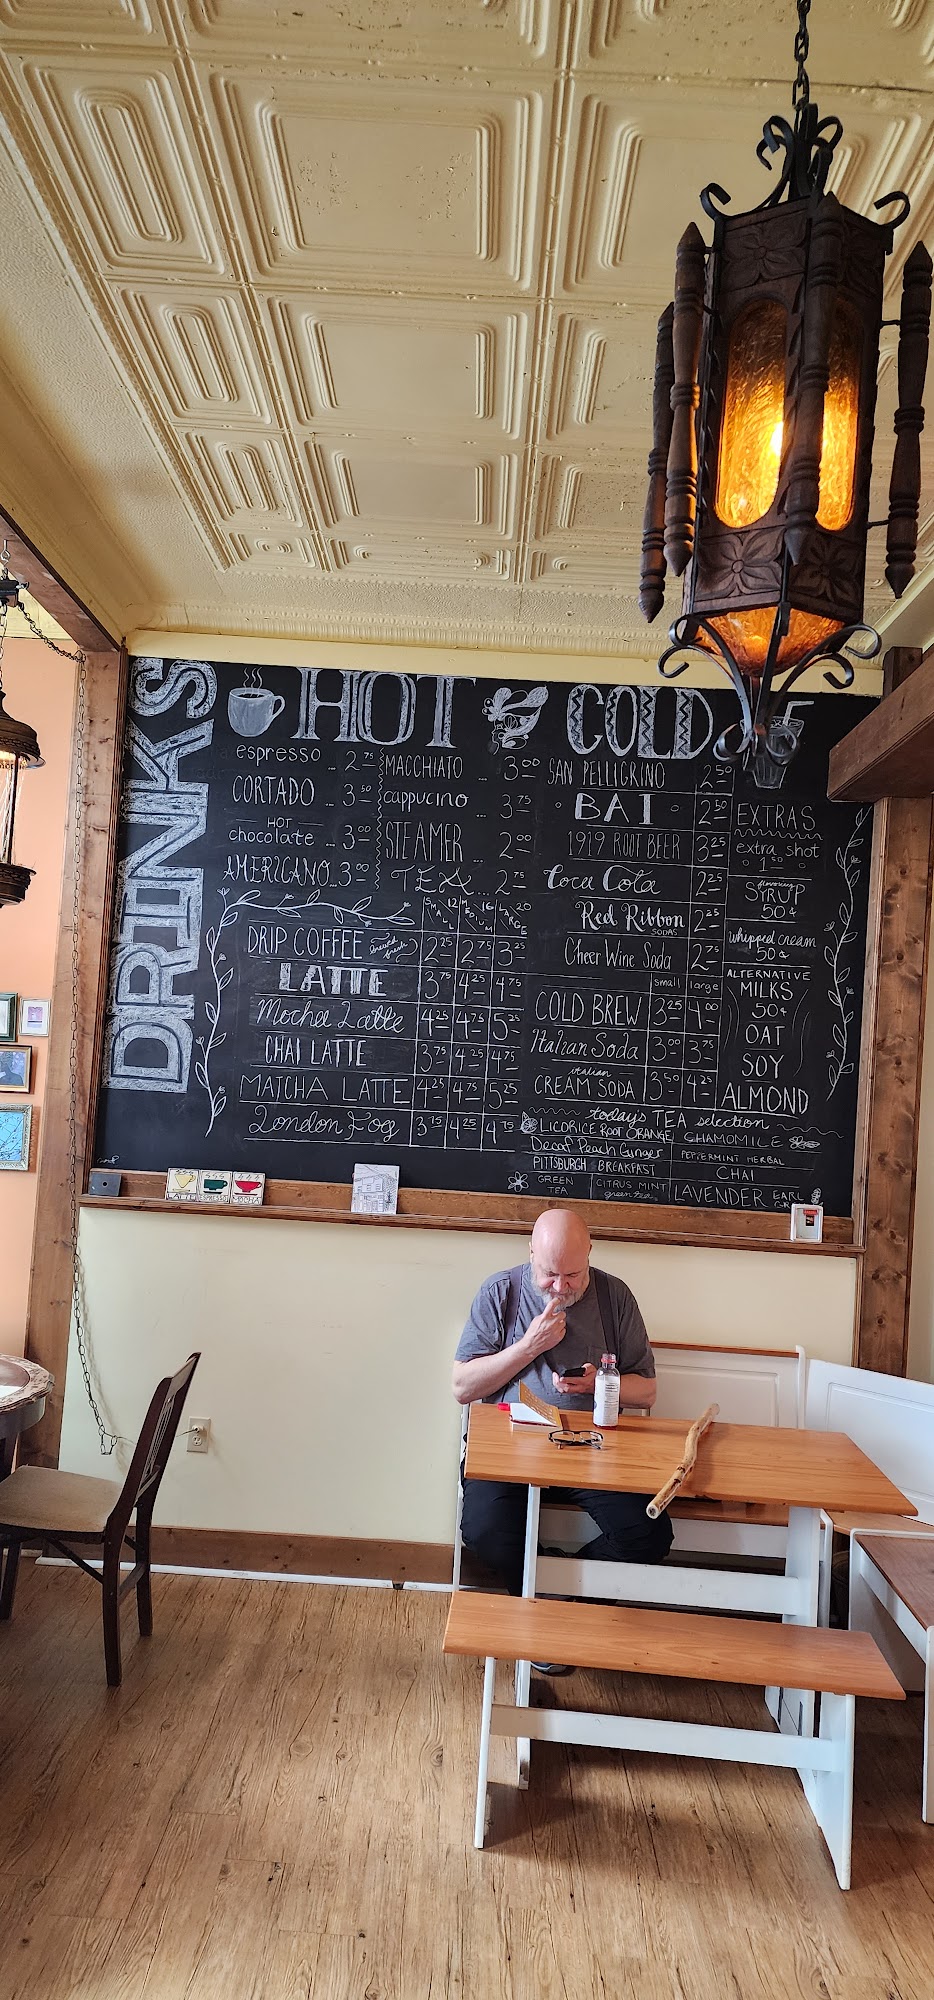 DRINKS
HOT
espresso ... 2 75
CORTADO ... 3 50
HOT
chocolate ... 3 00
AMERICANO... 3 00
MACCHIATO ... 3 00
cappucino 3 75
STEAMER ... 2 00
TEA ... 2 75
SMALL 12 MEDIUM 16 LARGE 20
DRIP COFFEE 2 25 2 75 3 25
LATTE 3 75 4 25 4 75
Mocha Latte 4 25 4 75 5 25
CHAI LATTE 3 75 4 25 4 75
MATCHA LATTE 4 25 4 75 5 25
London Fog 3 75 4 25 4 75
COLD
SAN PELLIGRINO 2 50
BAI 2 50
1919 ROOT BEER 3 25
Coca Cola 2 25
Red Ribbon SODAS 2 25
Cheer Wine Soda 2 75
small large
COLD BREW 3 25 4 00
Italian Soda 3 00 3 75
italian
CREAM SODA 3 50 4 25
EXTRAS
extra shot
1 50
flavoring
SYRUP
50¢
whipped cream
50¢
ALTERNATIVE
MILKS
50¢
OAT
SOY
ALMOND
today's TEA selection
LICORICE ROOT ORANGE CHAMOMILE
Decaf Peach Ginger PEPPERMINT HERBAL
PITTSBURGH BREAKFAST CHAI
GREEN TEA CITRUS MINT green tea LAVENDER EARL
LATTE ESPRESSO MOCHA